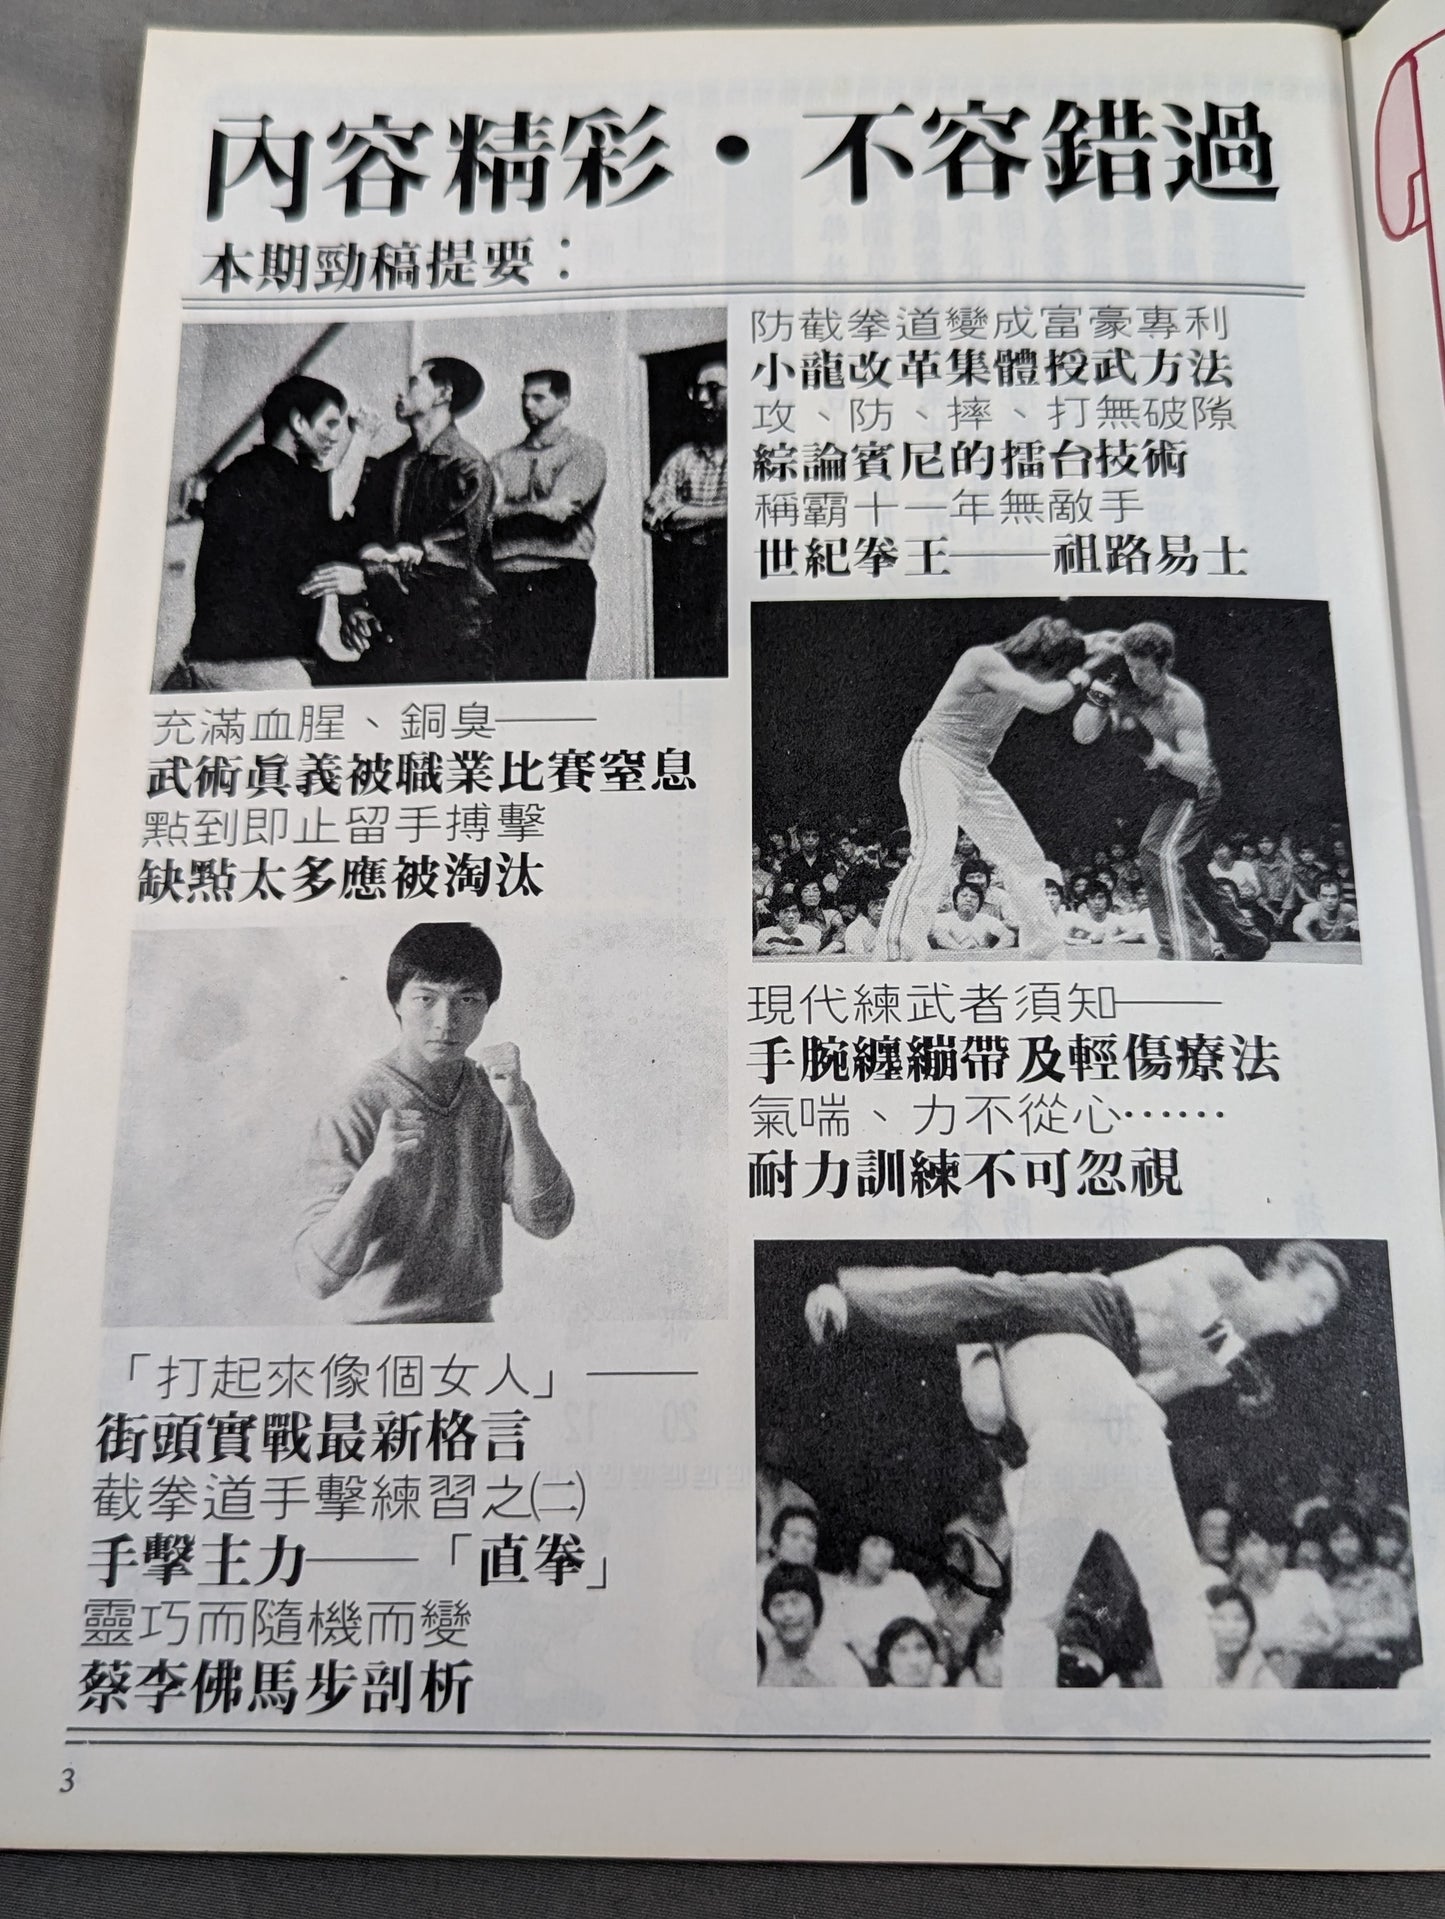 內容精彩·不容錯過
本期勁稿提要：
充滿血腥、銅臭——
武術眞義被職業比賽窒息
點到即止留手搏擊
缺點太多應被淘汰
「打起來像個女人」——
街頭實戰最新格言
截拳道手擊練習之㈡
手擊主力——「直拳」
靈巧而隨機而變
蔡李佛馬步剖析
防截拳道變成富豪專利
小龍改革集體授武方法
攻、防、摔、打無破隙
綜論賓尼的擂台技術
稱霸十一年無敵手
世紀拳王——祖路易士
現代練武者須知——
手腕纏繃帶及輕傷療法
氣喘、力不從心……
耐力訓練不可忽視
3